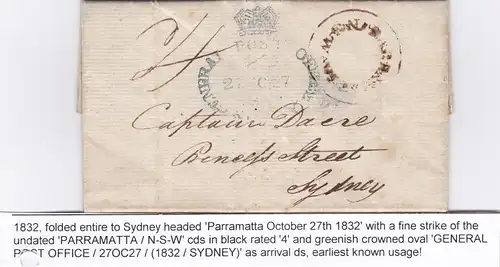 4
GENERAL POST OFFICE
27OC27
PARRAMATTA
N.S.W
Captain Dacre
Princess Street
Sydney
1832, folded entire to Sydney headed 'Parramatta October 27th 1832' with a fine strike of the
undated 'PARRAMATTA / N-S-W' cds in black rated '4' and greenish crowned oval 'GENERAL
POST OFFICE / 27OC27 / (1832 / SYDNEY)' as arrival ds, earliest known usage!